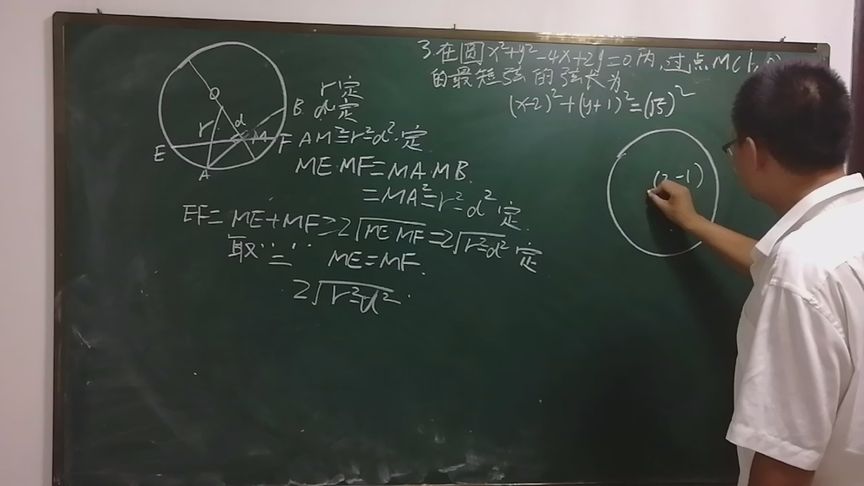 3.在圆x²+y²-4x+2y=0内,过点M(1,0)
的最短弦的弦长为
(x-2)²+(y+1)²=(√5)²
(2,-1)
O
r
d
M
E
F
A
B
r定
d定
AM²=r²-d².定
ME·MF=MA·MB.
=MA²=r²-d².定
EF=ME+MF≥2√ME·MF=2√r²-d².定
取"=" ME=MF.
2√r²-d².